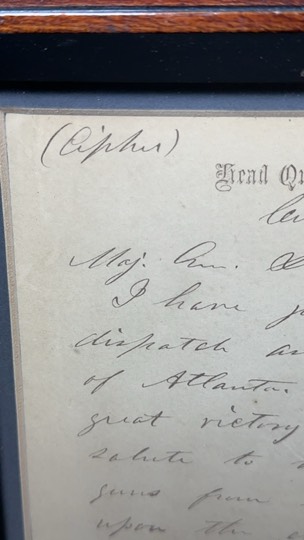 (Cipher)
Head Qu
Maj. Gen. S
I have ju
dispatch an
of Atlanta.
great victory
salute to
guns from
upon the